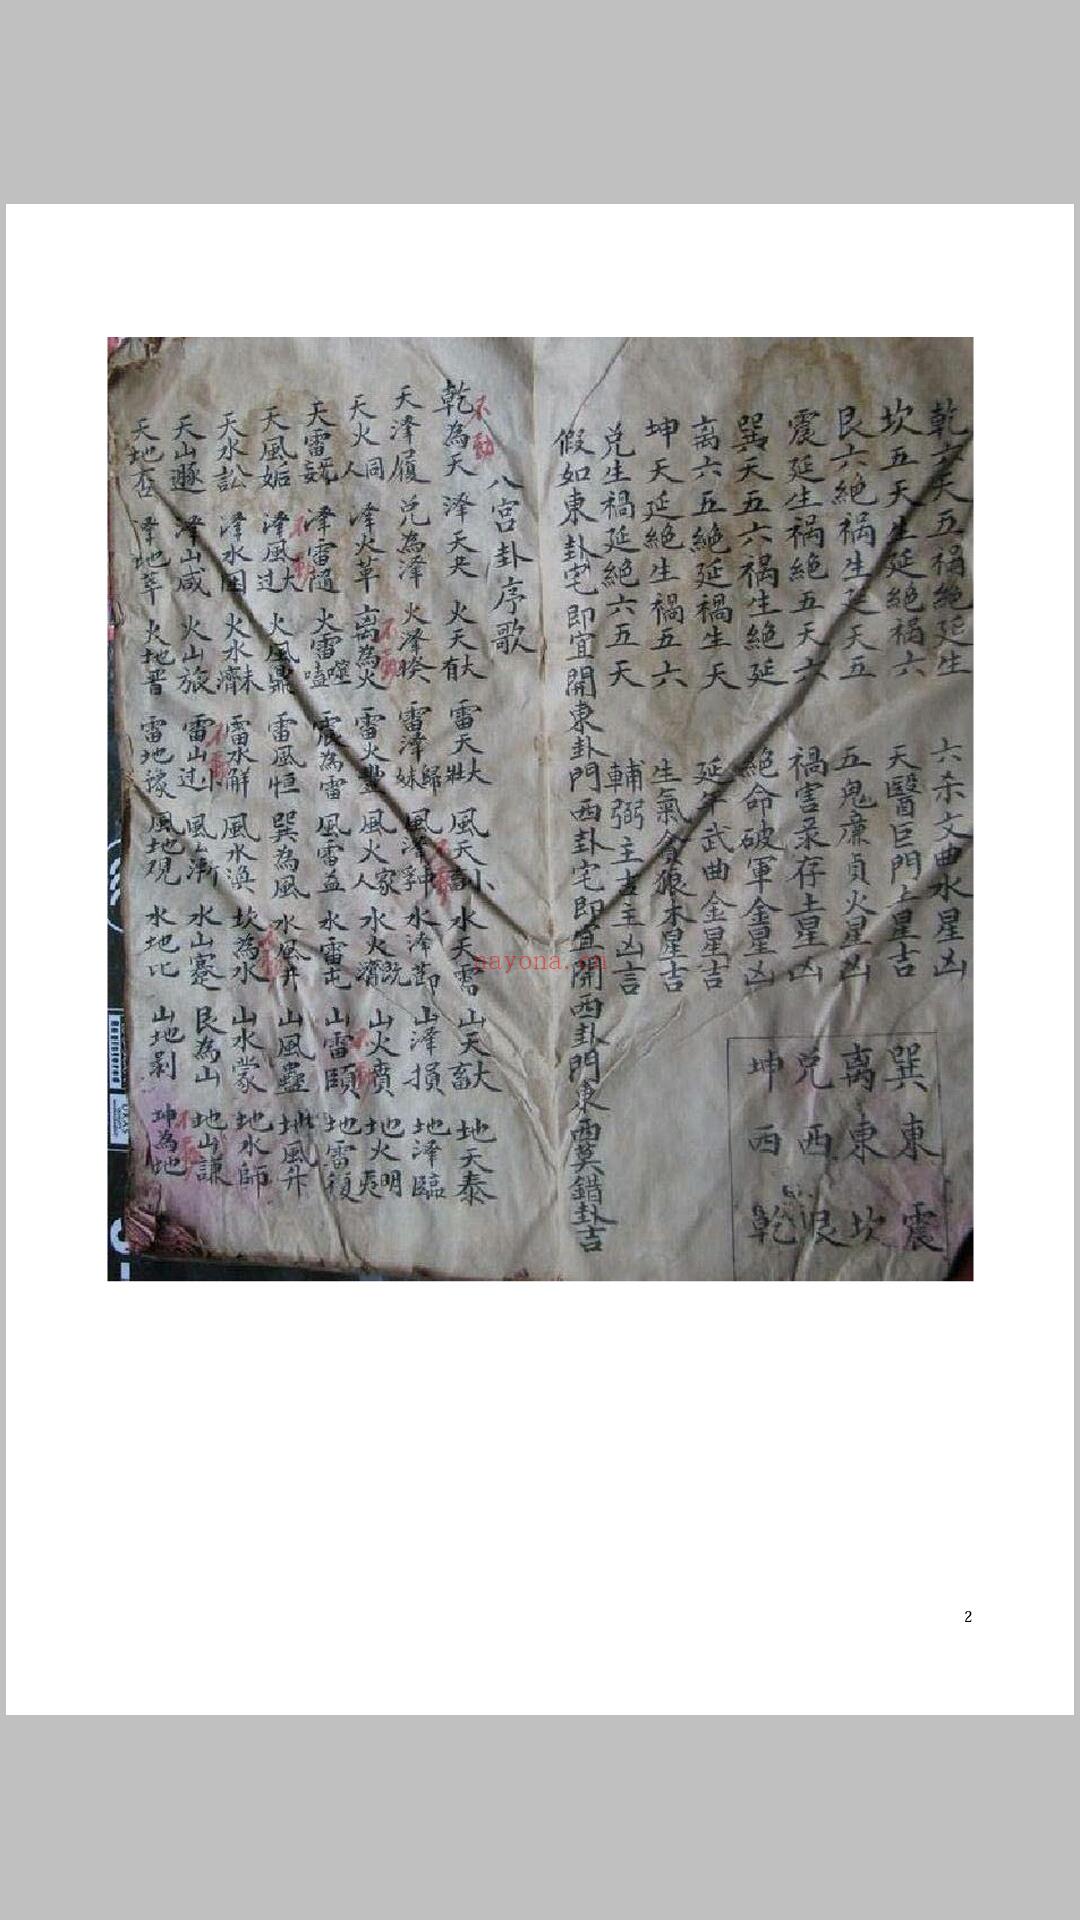 乾六天五禍絶延生 六杀文曲水星凶
坎五天生延絶禍六 天醫巨門土星吉
艮六絶禍生延天五 五鬼廉貞火星凶
震延生禍絶五天六 禍害录存土星凶
巽天五六禍生絶延 絶命破軍金星凶
离六五絶延禍生天 延年武曲金星吉
坤天延絶生禍五六 生氣貪狼木星吉
兑生禍延絶六五天 輔弼主吉主凶言
假如東卦宅即宜開東卦門西卦宅即宜開西卦門東西莫錯卦吉
巽 东 震
离 東 坎
兑 西 艮
坤 西 乾
八宫卦序歌
乾為天 澤天夬 火天大有 雷天大壯 風天小畜 水天需 山天大畜 地天泰
不動
天澤履 兑為澤 火澤睽 雷澤歸妹 風澤中孚 水澤節 山澤損 地澤臨
天火同人 澤火革 离為火 雷火豐 風火家人 水火既濟 山火賁 地火明夷
天雷 澤雷隨 火雷噬嗑 震為雷 風雷益 水雷屯 山雷頤 地雷復
天風姤 澤風大过 火風鼎 雷風恒 巽為風 水風井 山風蠱 地風升
天水訟 澤水困 火水未濟 雷水解 風水渙 坎為水 山水蒙 地水師
天山遯 澤山咸 火山旅 雷山小过 風山漸 水山蹇 艮為山 地山謙
天地否 澤地萃 火地晋 雷地豫 風地观 水地比 山地剥 坤為地
nayona.cn
2